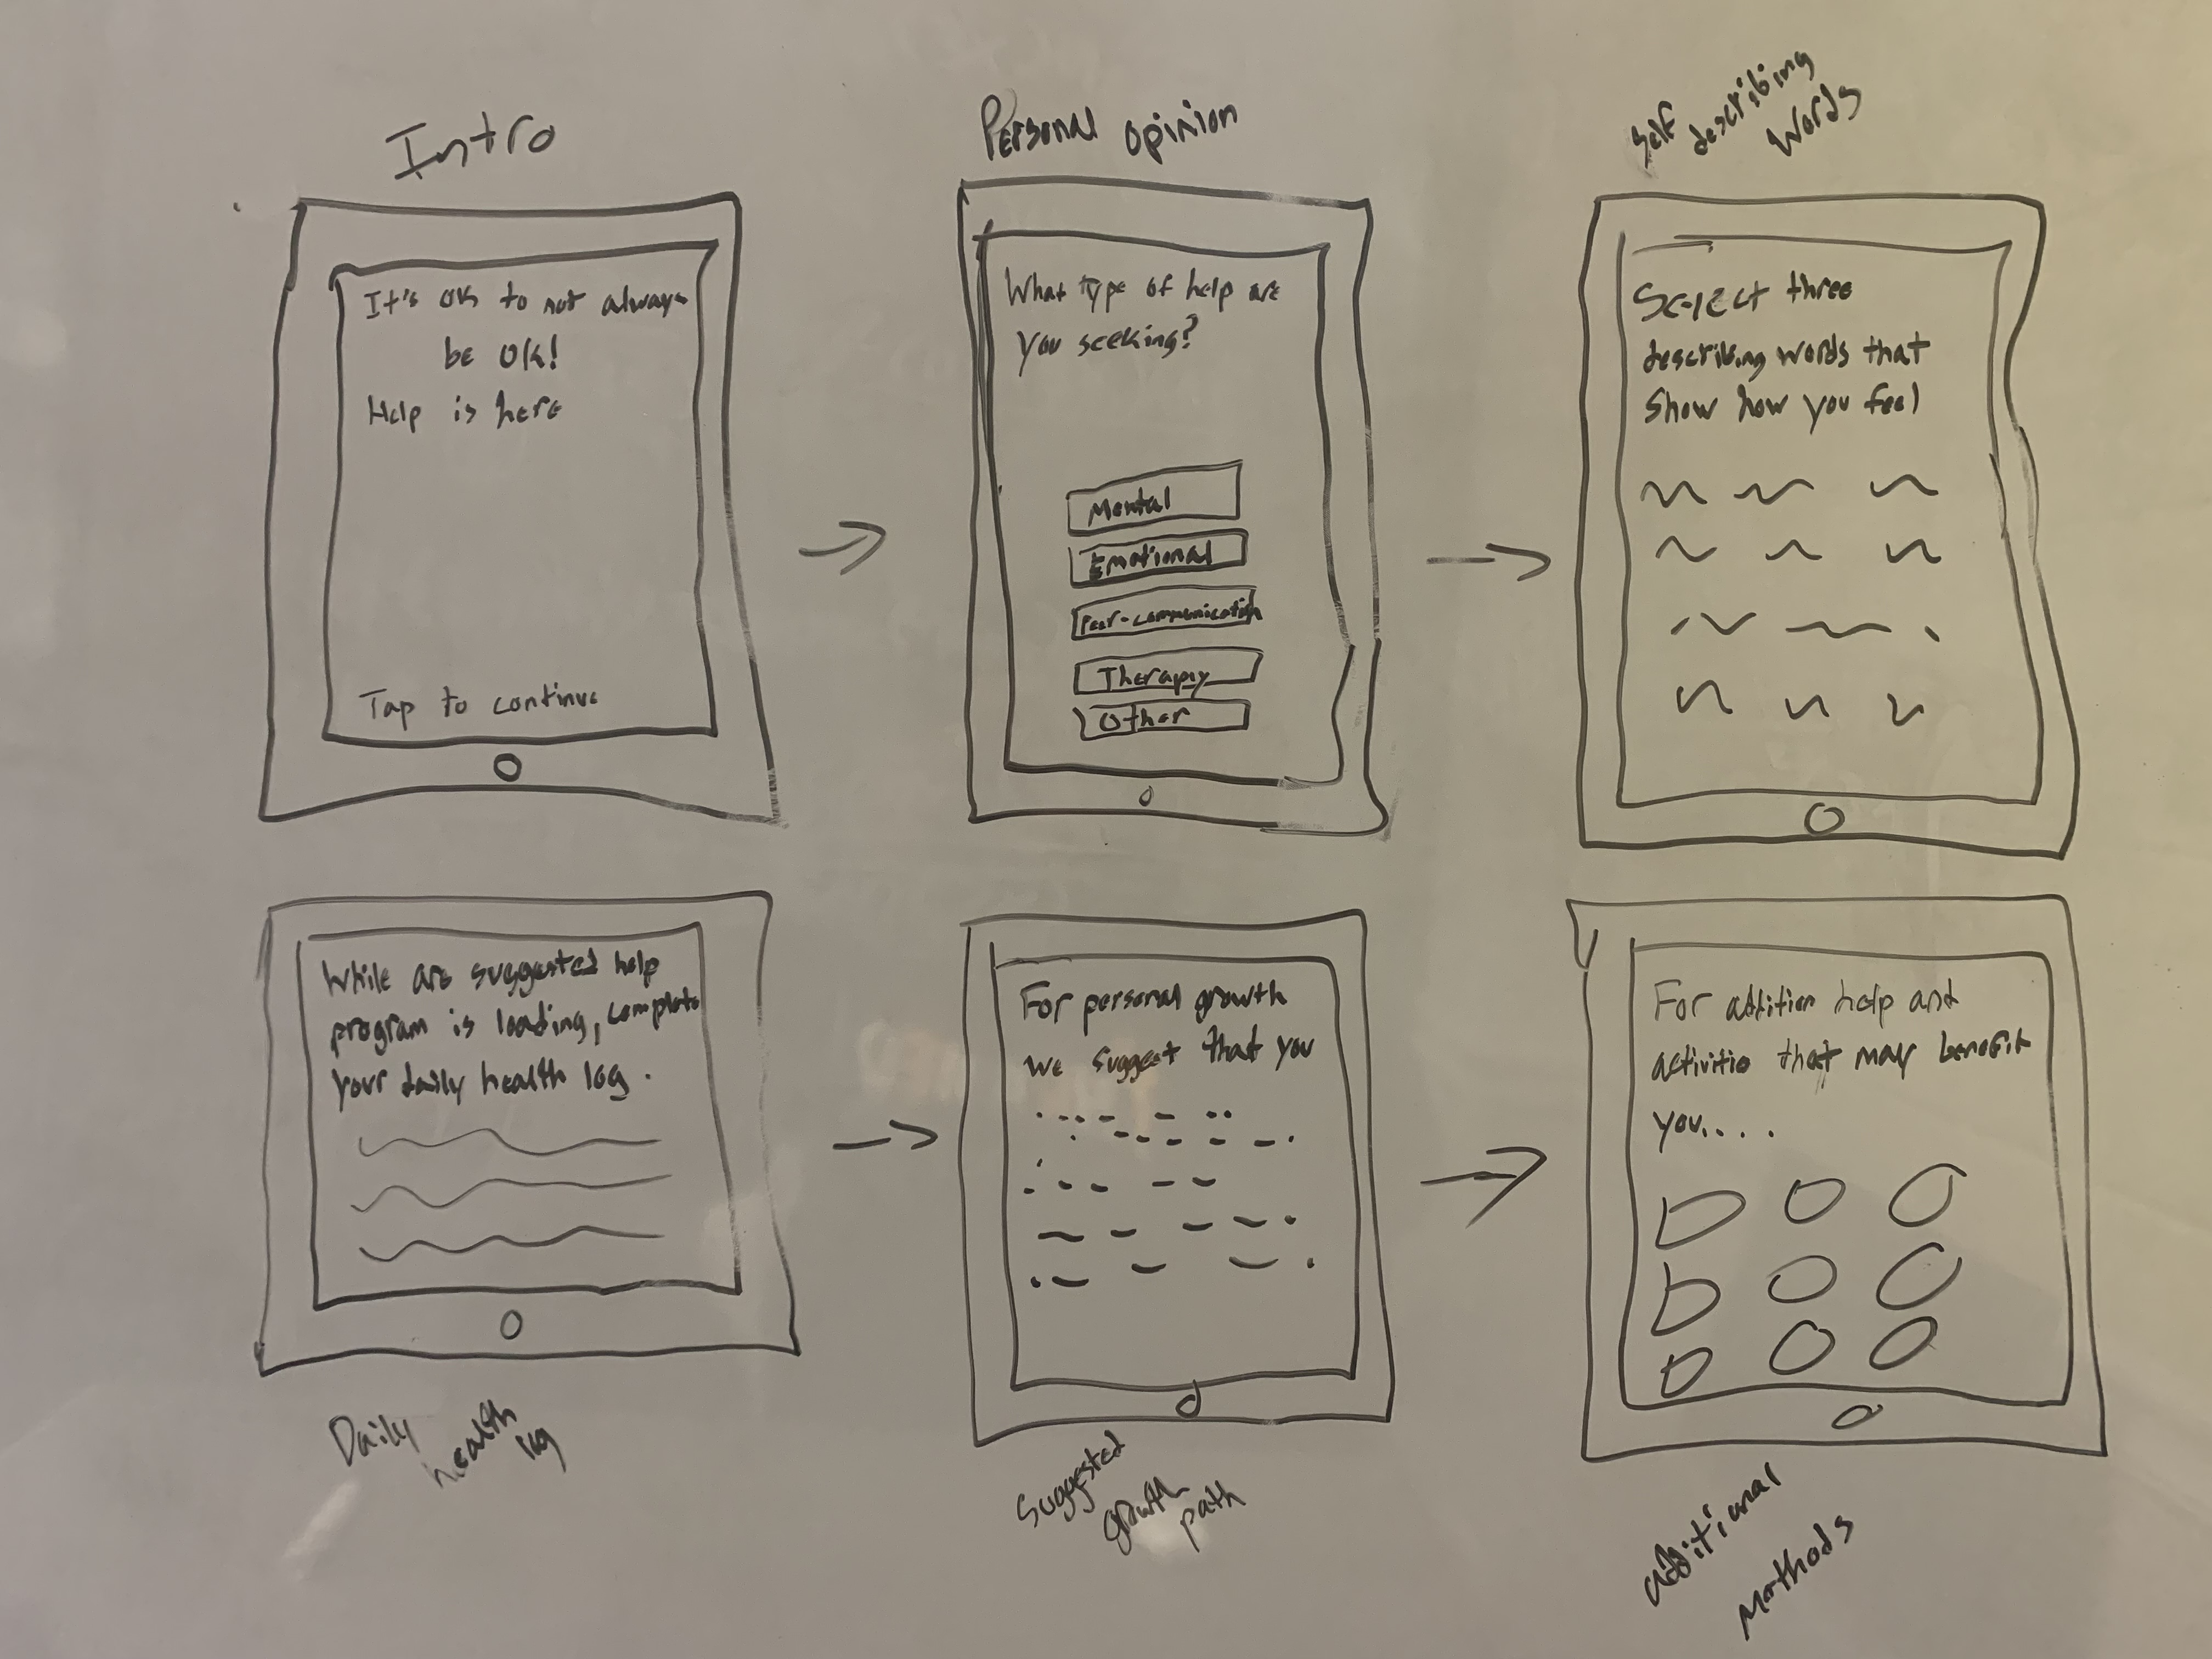 Intro
It's ok to not always
be ok!
Help is here
Tap to continue
Personal opinion
What type of help are
you seeking?
Mental
Emotional
Peer-communication
Therapy
Other
Self
describing
words
Select three
describing words that
show how you feel
While are suggested help
program is loading, complete
your daily health log.
Daily
health
log
For personal growth
we suggest that you
Suggested
growth
path
For addition help and
activities that may benefit
you....
additional
methods